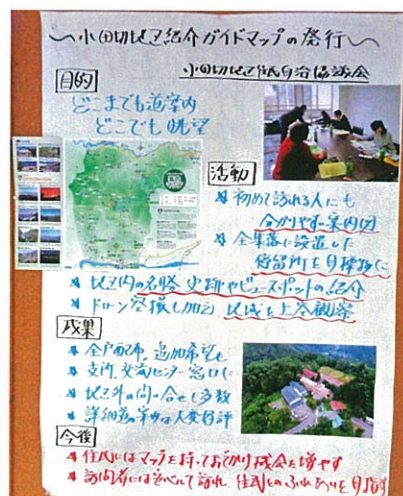 ～小田切地区紹介ガイドマップの発行～
小田切地区住民自治協議会
目的
どこまでも道案内
どこでも眺望
活動
初めて訪れる人にも
分かりやすい案内図
全集落に設置した
停留所を目標物に
地区内の名勝 史跡やビュースポットの紹介
ドローン空撮も加え 地域を上空観察
成果
全戸配布。追加希望も
支所、交流センター窓口に
地区外の問い合せも多数
詳細道の案内は大変好評
今後
住民にはマップを持っておでかけ機会を増やす
訪問者には 訪れ、住民とのふれあいを目指す